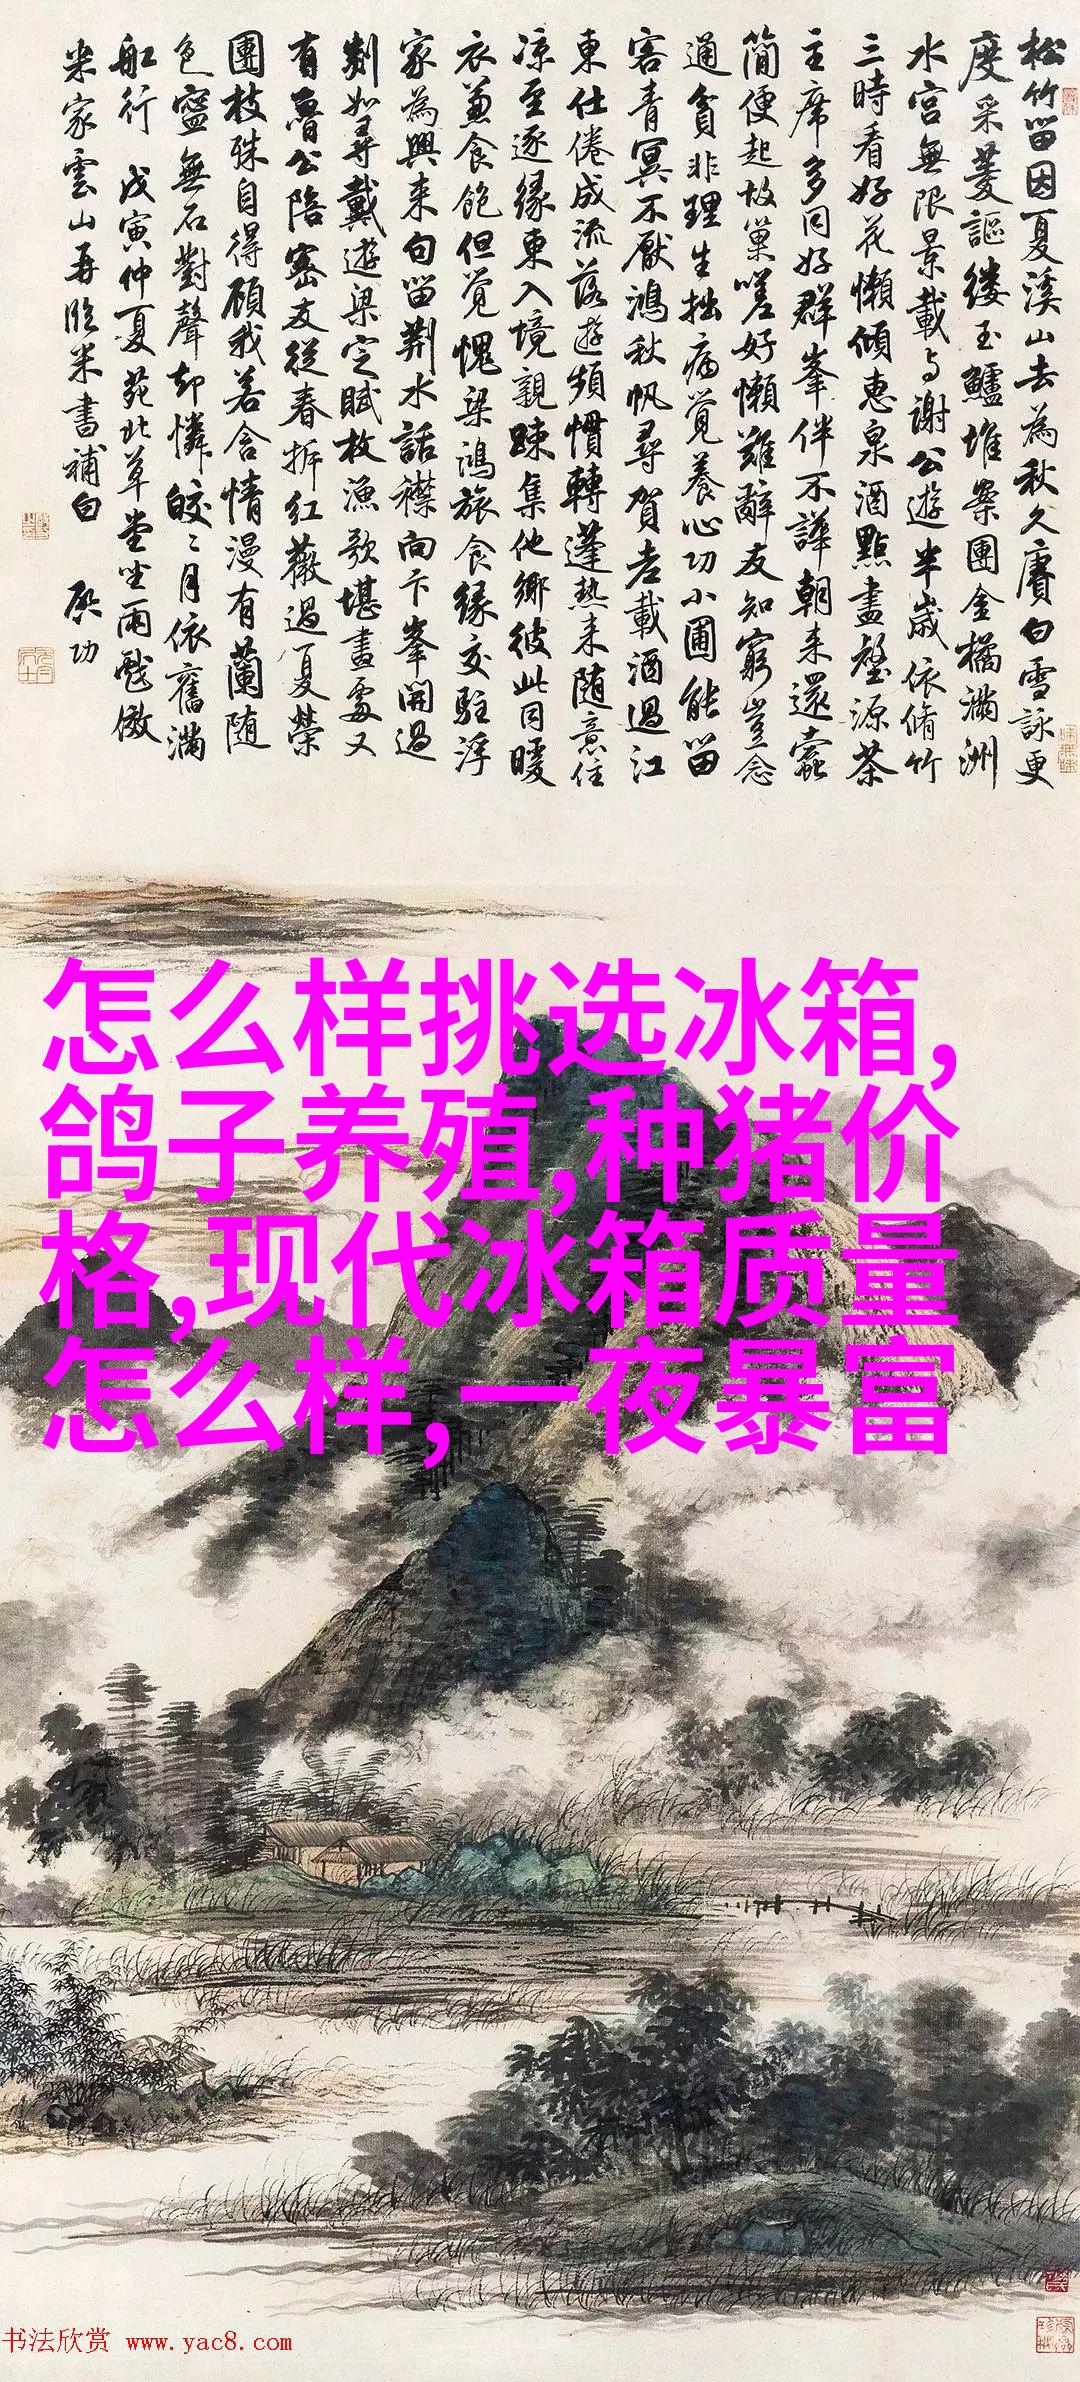 松竹留因夏溪山去為秋久賡白雪詠更
度采菱謳縷玉鱸堆案團金橘滿洲
水宮無限景載与謝公遊半歲依脩竹
三時看好花懶傾惠泉酒點盡壑源茶
主席多同好群峯伴不譁朝来還蠹
簡便起故巢嗟好懶難辭友知窮豈念
通貧非理生拙病覺養心功小圃能留
客青冥不厭鴻秋帆尋賀老載酒過江
東仕倦成流落遊頻慣轉蓬熱来随意住
涼至逐緣東入境親踈集他鄉彼此同暖
衣兼食飽但覺愧梁鴻旅食緣交駐浮
家為興来句留荆水話襟向卞峯開過
剡如尋戴遊梁定賦枚漁歌堪畫處又
有魯公陪密友從春拆紅薇過夏榮
團枝殊自得顧我若含情漫有蘭随
色寧無石對聲却憐皎〻月依舊滿
舡行 戊寅仲夏苑北草堂坐雨戲倣
米家雲山再臨米書補白 啟功
怎么样挑选冰箱,
鸽子养殖,种猪价
格,现代冰箱质量
怎么样,一夜暴富
书法欣赏 www.yac8.com